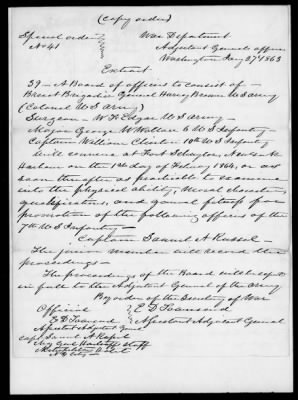 (Copy order)
Special order War Department
No 41 Adjutant Generals office
Washington Jany 27 1863
Extract
39 – A Board of officers to consist of –
Brevet Brigadier General Harvey Brown U S Army
(Colonel U S Army)
Surgeon – W F Edgar U S Army –
Major George W Wallace 6 U S Infantry –
Captain William Clinton 10th U S Infantry
will convene at Fort Schuyler, New York
Harbor on the 1st day of February 1864, or as
soon thereafter as practicable to examine
into the physical ability, moral character,
qualifications, and general fitness for
promotion of the following officers of the
7th U S Infantry –
Captain Samuel A Russel –
The junior member will record the
proceedings –
The proceedings of the Board will be sent
in full to the Adjutant General of the Army
By order of the Secretary of War
Official E D Townsend
E D Townsend Assistant Adjutant General
Assistant Adjutant Genl
Capt Samuel A Russel
Genl staff
N Y City –